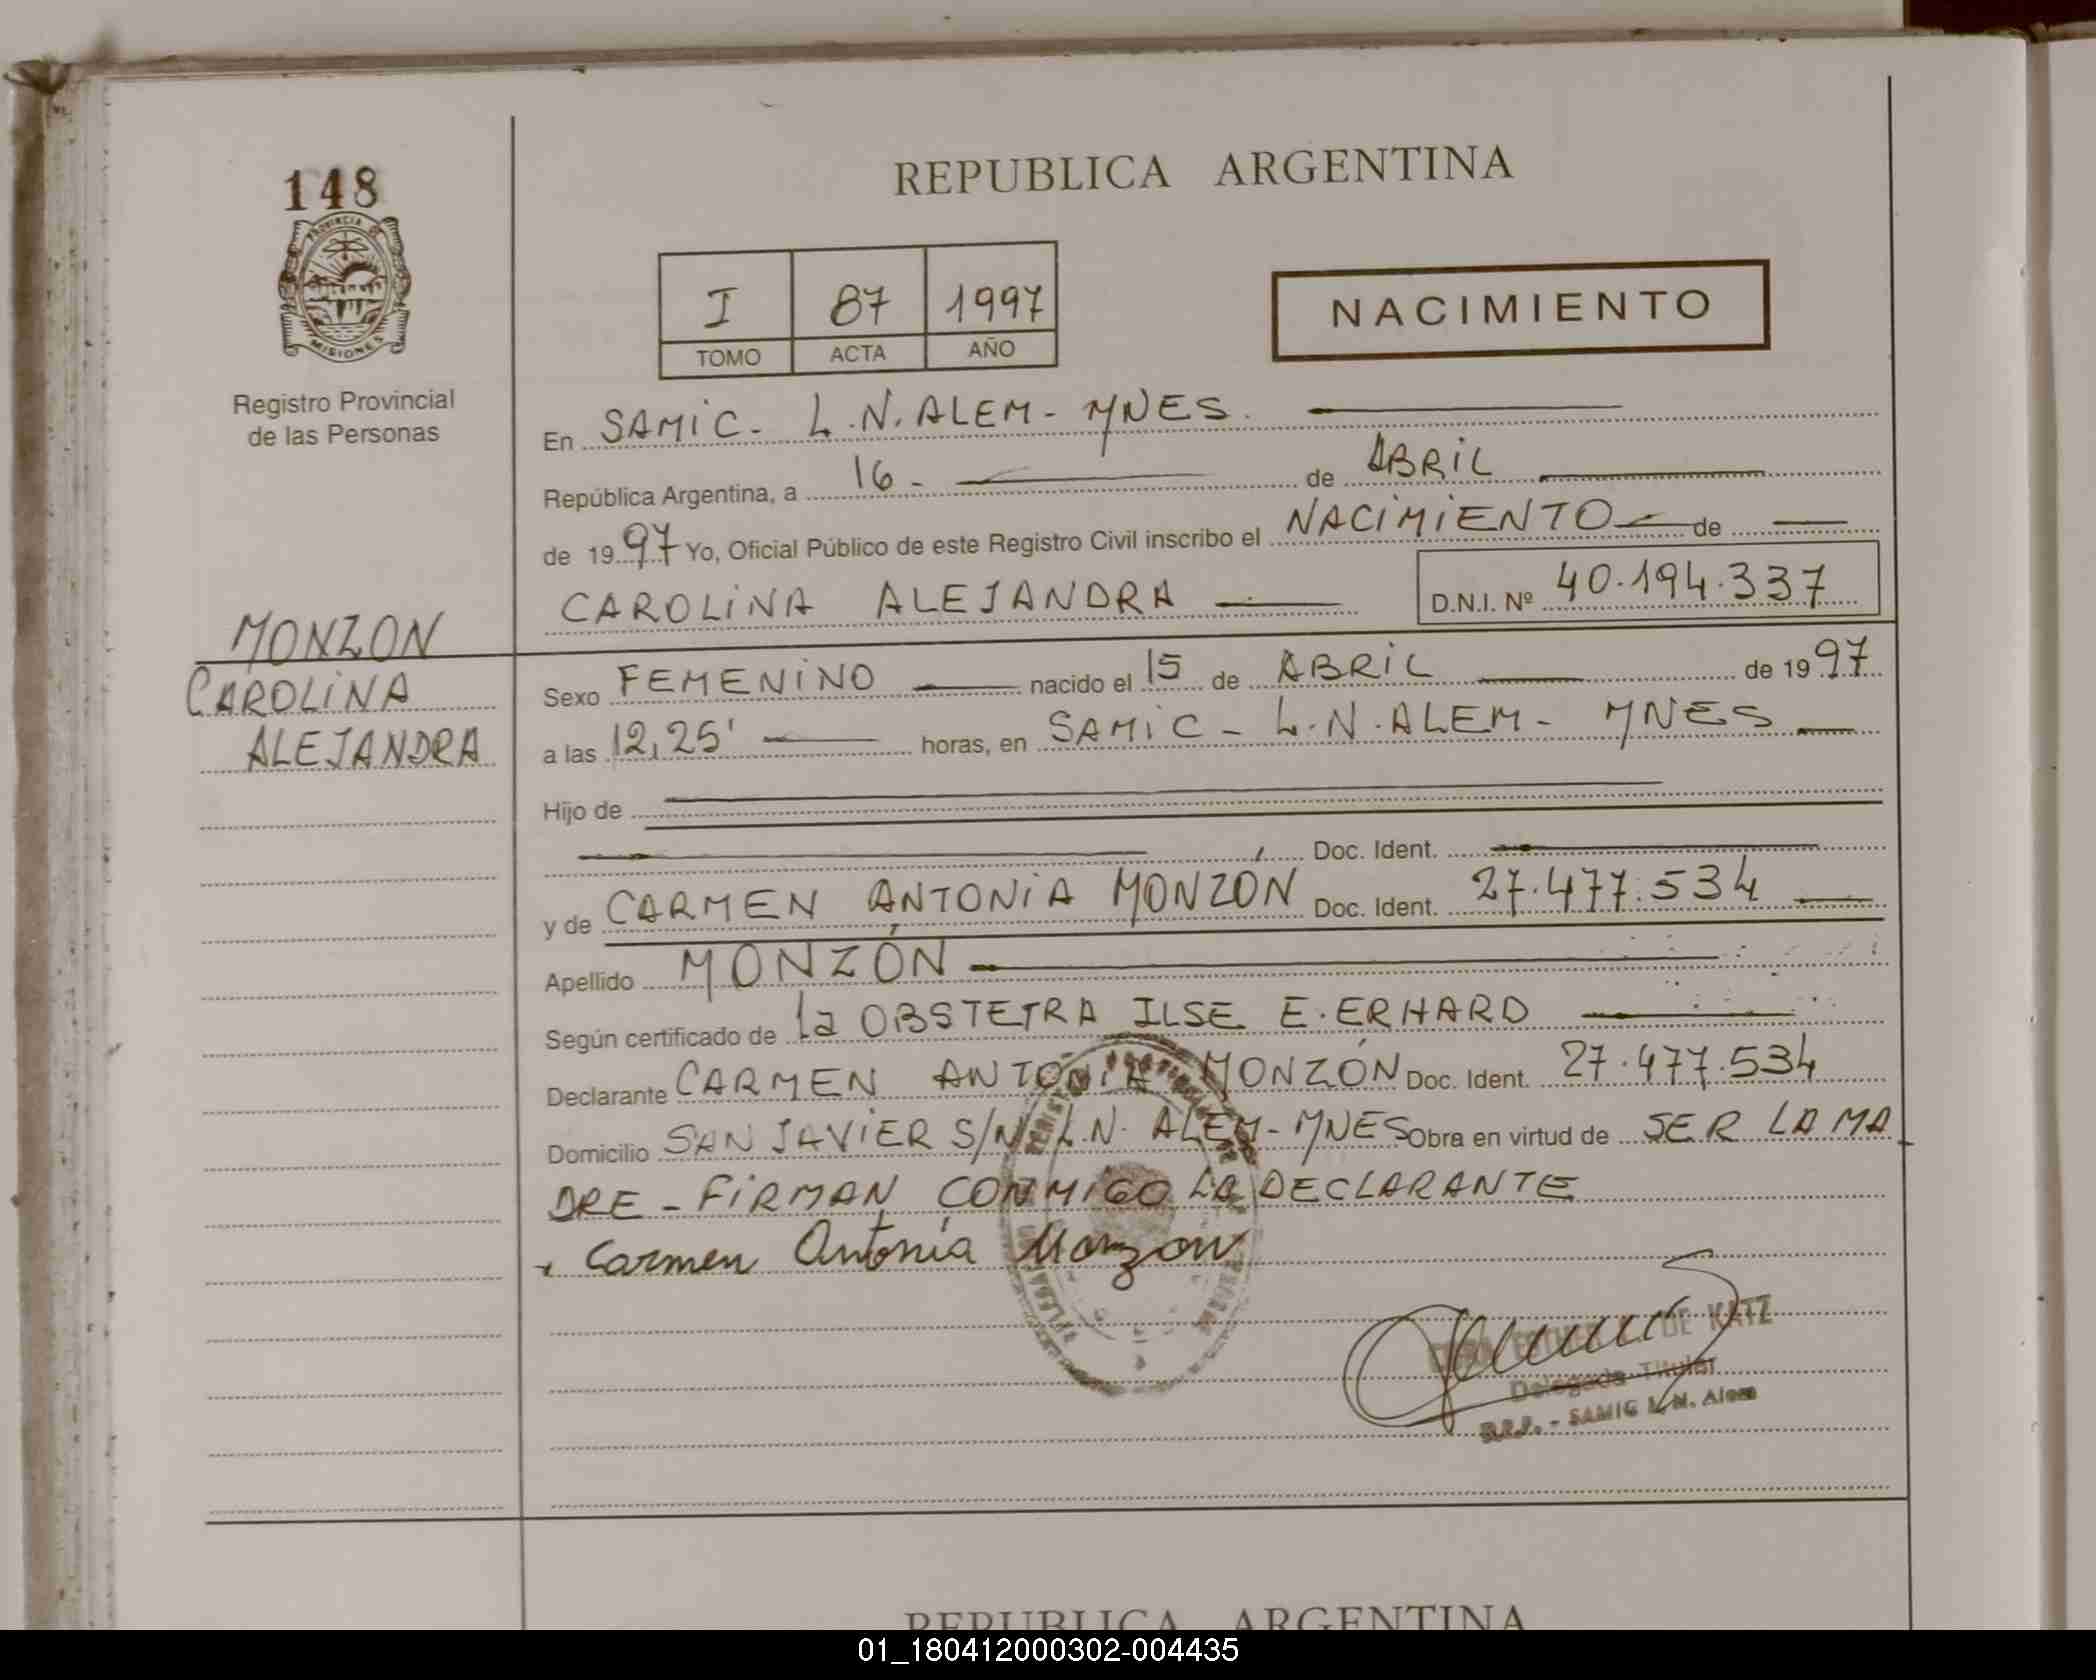 148
PROVINCIA DE
MISIONES
Registro Provincial
de las Personas
MONZON
CAROLINA
ALEJANDRA
REPUBLICA ARGENTINA
I 87 1997
TOMO ACTA AÑO
NACIMIENTO
En SAMIC - L.N. ALEM - MNES.
República Argentina, a 16 - de ABRIL
de 1997 Yo, Oficial Público de este Registro Civil inscribo el NACIMIENTO de
CAROLINA ALEJANDRA D.N.I. Nº 40.194.337
Sexo FEMENINO nacido el 15 de ABRIL de 1997
a las 12,25' horas, en SAMIC - L.N. ALEM - MNES
Hijo de
Doc. Ident.
y de CARMEN ANTONIA MONZÓN Doc. Ident. 27.477.534
Apellido MONZÓN
Según certificado de la OBSTETRA ILSE E. ERHARD
Declarante CARMEN ANTONIA MONZÓN Doc. Ident. 27.477.534
Domicilio SAN JAVIER S/N L.N. ALEM - MNES Obra en virtud de SER LA MA
DRE - FIRMAN CONMIGO LA DECLARANTE
Carmen Antonia Monzon
DE KATZ
Delegada Titular
R.P.P. - SAMIC L. N. Alem
REPUBLICA ARGENTINA
01_180412000302-004435